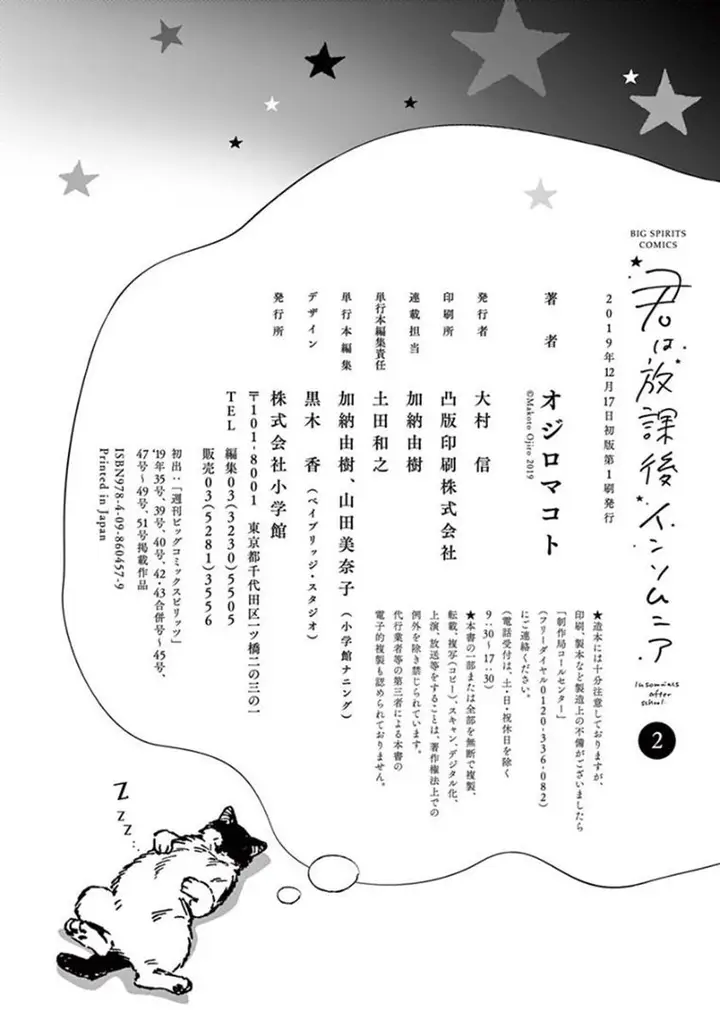 BIG SPIRITS
COMICS
君は放課後インソムニア
Insomniacs after school
2
2019年12月17日初版第1刷発行
著者
オジロマコト
©Makoto Ojiro 2019
発行者
大村 信
印刷所
凸版印刷株式会社
連載担当
加納由樹
単行本編集責任
土田和之
単行本編集
加納由樹、山田美奈子(小学館ナニング)
デザイン
黒木 香(ベイブリッジ・スタジオ)
発行所
株式会社小学館
〒101-8001 東京都千代田区一ツ橋二の三の一
TEL 編集03(3230)5505
販売03(5281)3556
初出:「週刊ビッグコミックスピリッツ」
'19年35号、39号、40号、42・43合併号〜45号、
47号〜49号、51号掲載作品
ISBN978-4-09-860457-9
Printed in Japan
★造本には十分注意しておりますが、
印刷、製本など製造上の不備がございましたら
「制作局コールセンター」
(フリーダイヤル0120-336-082)
にご連絡ください。
(電話受付は、土・日・祝休日を除く
9:30〜17:30)
★本書の一部または全部を無断で複製、
転載、複写(コピー)、スキャン、デジタル化、
上演、放送等をすることは、著作権法上での
例外を除き禁じられています。
代行業者等の第三者による本書の
電子的複製も認められておりません。
Z
Z
Z